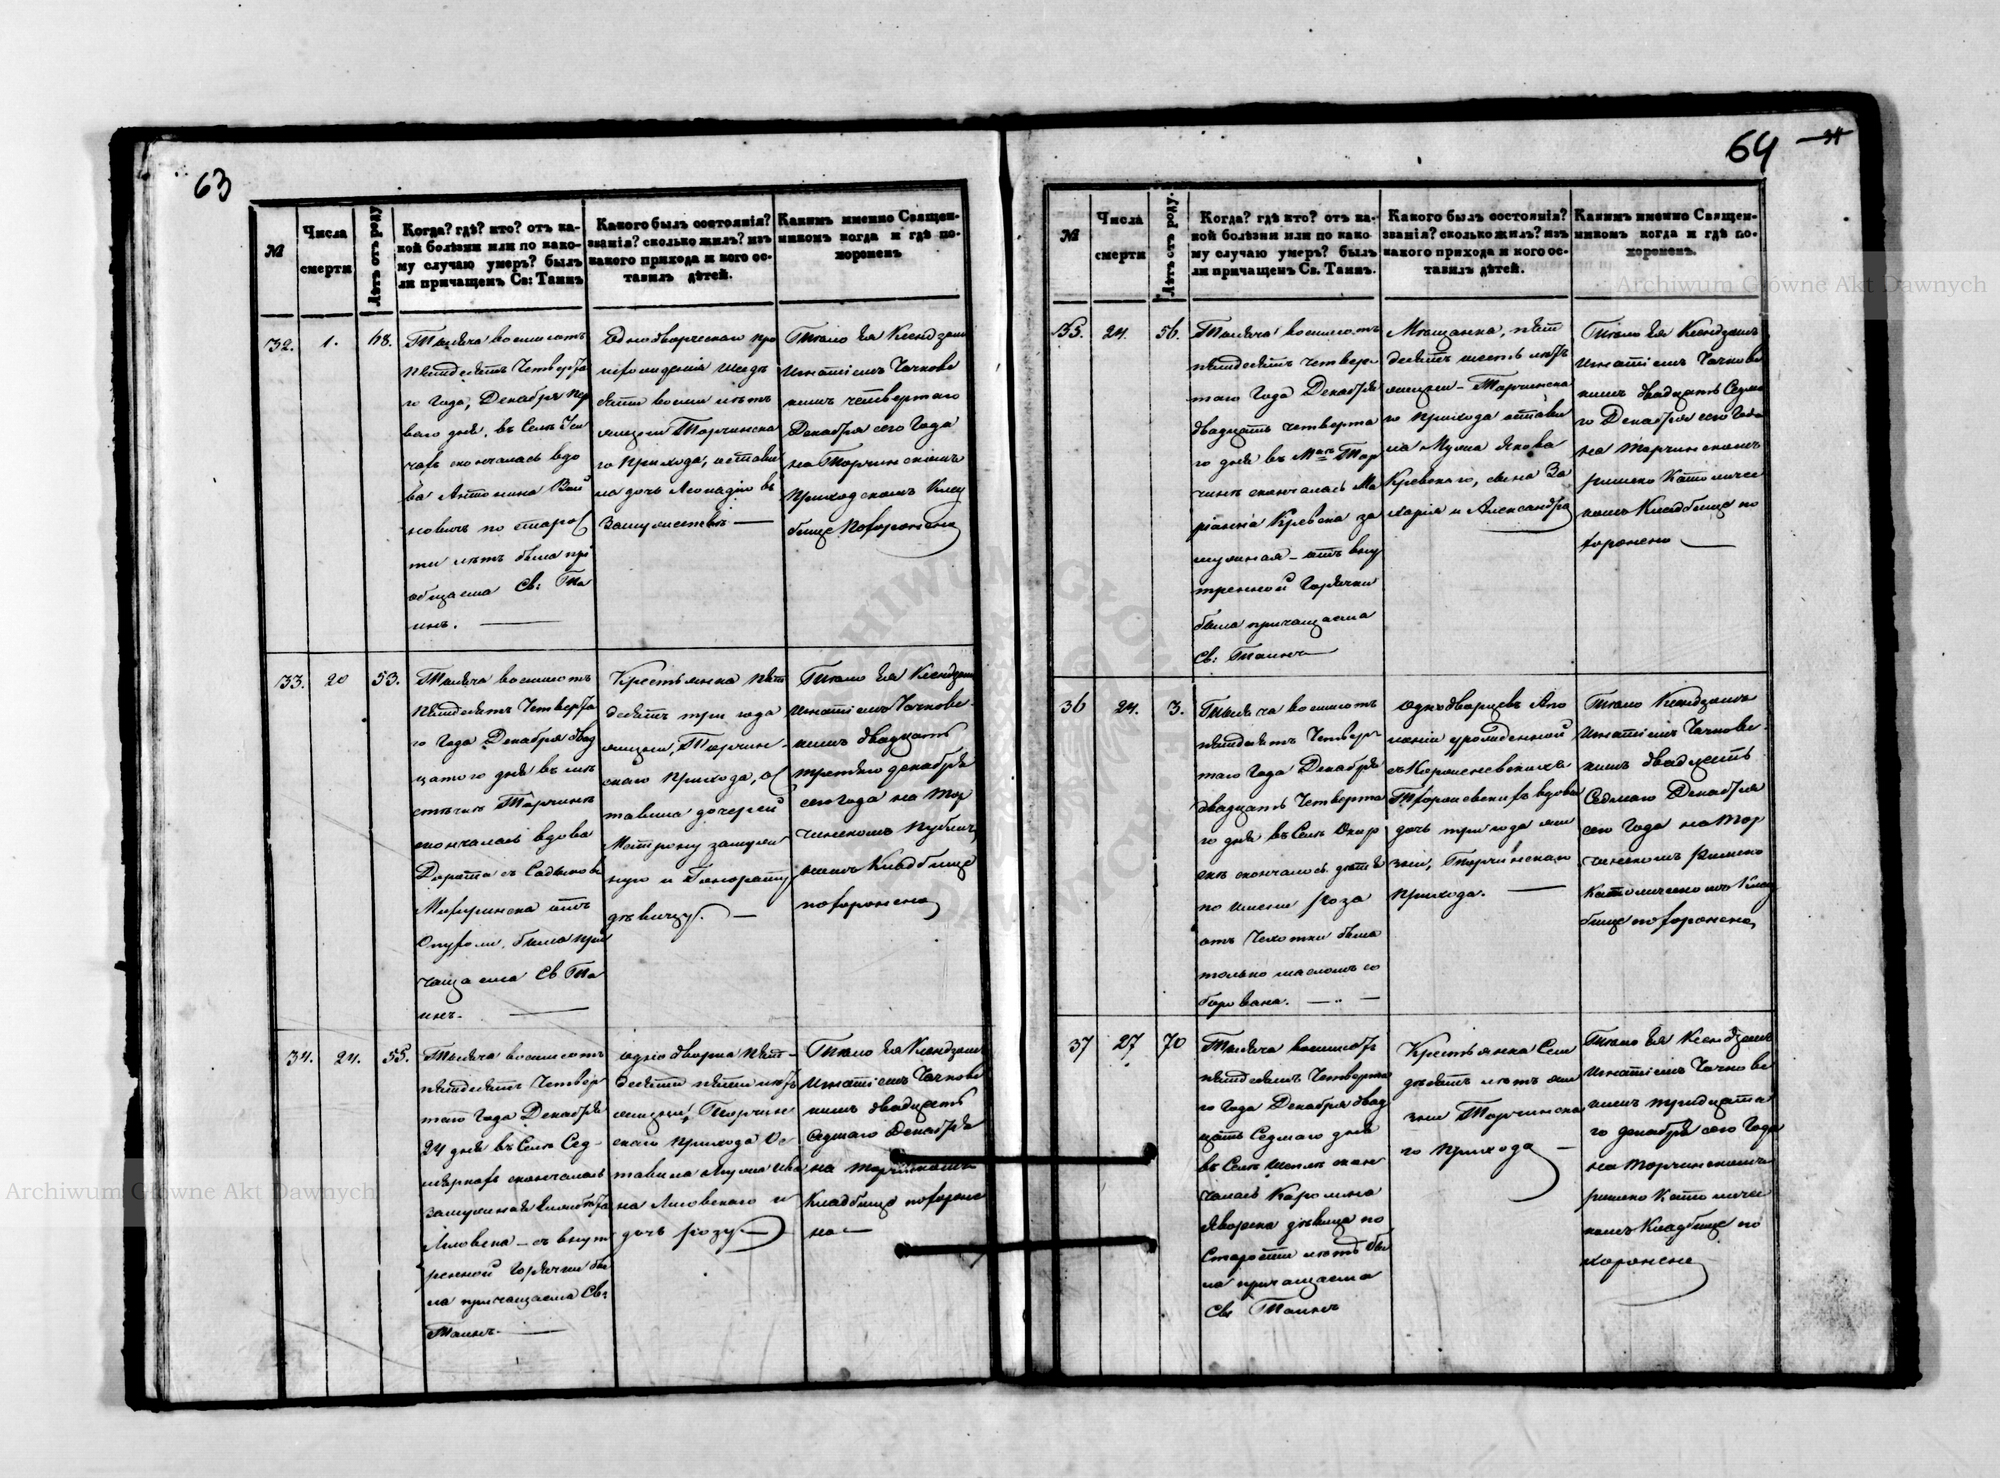 63
№
Числа
смерти
Лѣтъ отъ роду
Когда? гдѣ? кто? отъ ка-
кой болѣзни или по како-
му случаю умеръ? былъ
ли причащенъ Св: Таинъ
Какого былъ состоянія?
званія? сколько жилъ? изъ
какого прихода и кого ос-
тавилъ дѣтей.
Какимъ именно Священ-
никомъ когда и гдѣ по-
хороненъ
32.
1.
68.
Тысяча восмисотъ
пятдесятъ Четверта
го Года, Декабря пер
ваго дня, въ Селѣ
скончалась вдо
ва Антонина
по старос
ти лѣтъ была прі
общаема Св: Та
инъ.
Однодворческаго про
изхожденія шездѣ
сяти восми лѣтъ
жизни Торчинска
го прихода, остави
ла дочь Леокадію въ
Замужествѣ
Тѣло ея Ксендзомъ
Игнатіемъ Чачковс
кимъ четвертаго
Декабря сего Года
на Торчинскомъ
Приходскомъ Клад
бище похоронено
33.
20
53.
Тысяча восмисотъ
пятдесятъ Четверта
го Года Декабря двад
цатого дня въ мѣ
стечкѣ Торчинѣ
скончалась вдова
Дорота съ
отъ
Опухоли, была при
чащаема Св Та
инъ.
Крестьянка пят
десятъ три года
жизни, Торчин-
скаго прихода, ос
тавила дочерей
Матрону замуж
ную и Гонорату
дѣвицу.
Тѣло ея Ксендзомъ
Игнатіемъ Чачковс-
кимъ двадцать
третяго декабря
сего года на Тор
чинскомъ Публич
номъ Кладбище
похоронено
34.
24.
55.
Тысяча восмисотъ
пятдесятъ Четвер
таго Года Декабря
24 дня въ Селѣ Сад-
скончалась
замужная
Лиовска - съ внут
ренной горячки бы
ла причащаема Св:
Таинъ.
однодворка пят-
десяти пяти лѣтъ
жизни, Торчин
скаго прихода Ос
тавила мужа Ива
на Лиовскаго и
дочь Розу
Тѣло ея Ксендзомъ
Игнатіемъ Чачковс
кимъ двадцать
седмаго Декабря
на Торчинскомъ
Кладбище похороне
но
64
№
Числа
смерти
Лѣтъ отъ роду.
Когда? гдѣ? кто? отъ ка-
кой болѣзни или по како-
му случаю умеръ? былъ
ли причащенъ Св. Таинъ.
Какого былъ состоянія?
званія? сколько жилъ? изъ
какого прихода и кого ос-
тавилъ дѣтей.
Какимъ именно Священ-
никомъ когда и гдѣ по-
хороненъ.
35.
24.
56.
Тысяча восмисотъ
пятдесятъ Четвер
таго Года Декабря
двадцать четверта
го дня въ Мѣс: Тор
чинѣ скончалась Ма
ріанна Кревска за
мужная - отъ вну
тренной Горячки
была причащаема
Св: Таинъ
Мѣщанка, пят
десятъ шесть лѣтъ
жизни - Торчинска
го прихода остави
ла Мужа Якова
Кревскаго, сына За
харія и Александра
Тѣло ея Ксендзомъ
Игнатіемъ Чачковс
кимъ двадцать Седма
го Декабря сего Года
на Торчинскомъ
римско Католичес
комъ Кладбище по
хоронено
36
24.
3.
Тысяча восмисотъ
пятдесятъ Четвер
таго Года Декабря
двадцать Четверта
го дня въ Селѣ
скончалось дитя
по имени Роза
отъ Чахотки была
только масломъ со
борована.
однодворцевъ Апо
лоніи урожденной
съ Корженевскихъ
вдовы
дочь три года жи
зни, Торчинскаго
прихода.
Тѣло Ксендзомъ
Игнатіемъ Чачковс-
кимъ двадцать
Седмаго Декабря
сего Года на Тор
чинскомъ римско
Католическомъ Клад
бище похоронено
37
27
70
Тысяча восмисотъ
пятдесятъ Четверта
го Года Декабря двад
цать Седмаго дня
въ Селѣ скон
чалась Каролина
Яворска дѣвица по
Старости лѣтъ бы
ла причащаема
Св: Таинъ
Крестьянка Сем
десятъ лѣтъ жи
зни Торчинска
го прихода
Тѣло ея Ксендзомъ
Игнатіемъ Чачковс
кимъ тридцата
го декабря сего Года
на Торчинскомъ
римско Католичес
комъ Кладбище по
хоронено
Archiwum Główne Akt Dawnych
Archiwum Główne Akt Dawnych